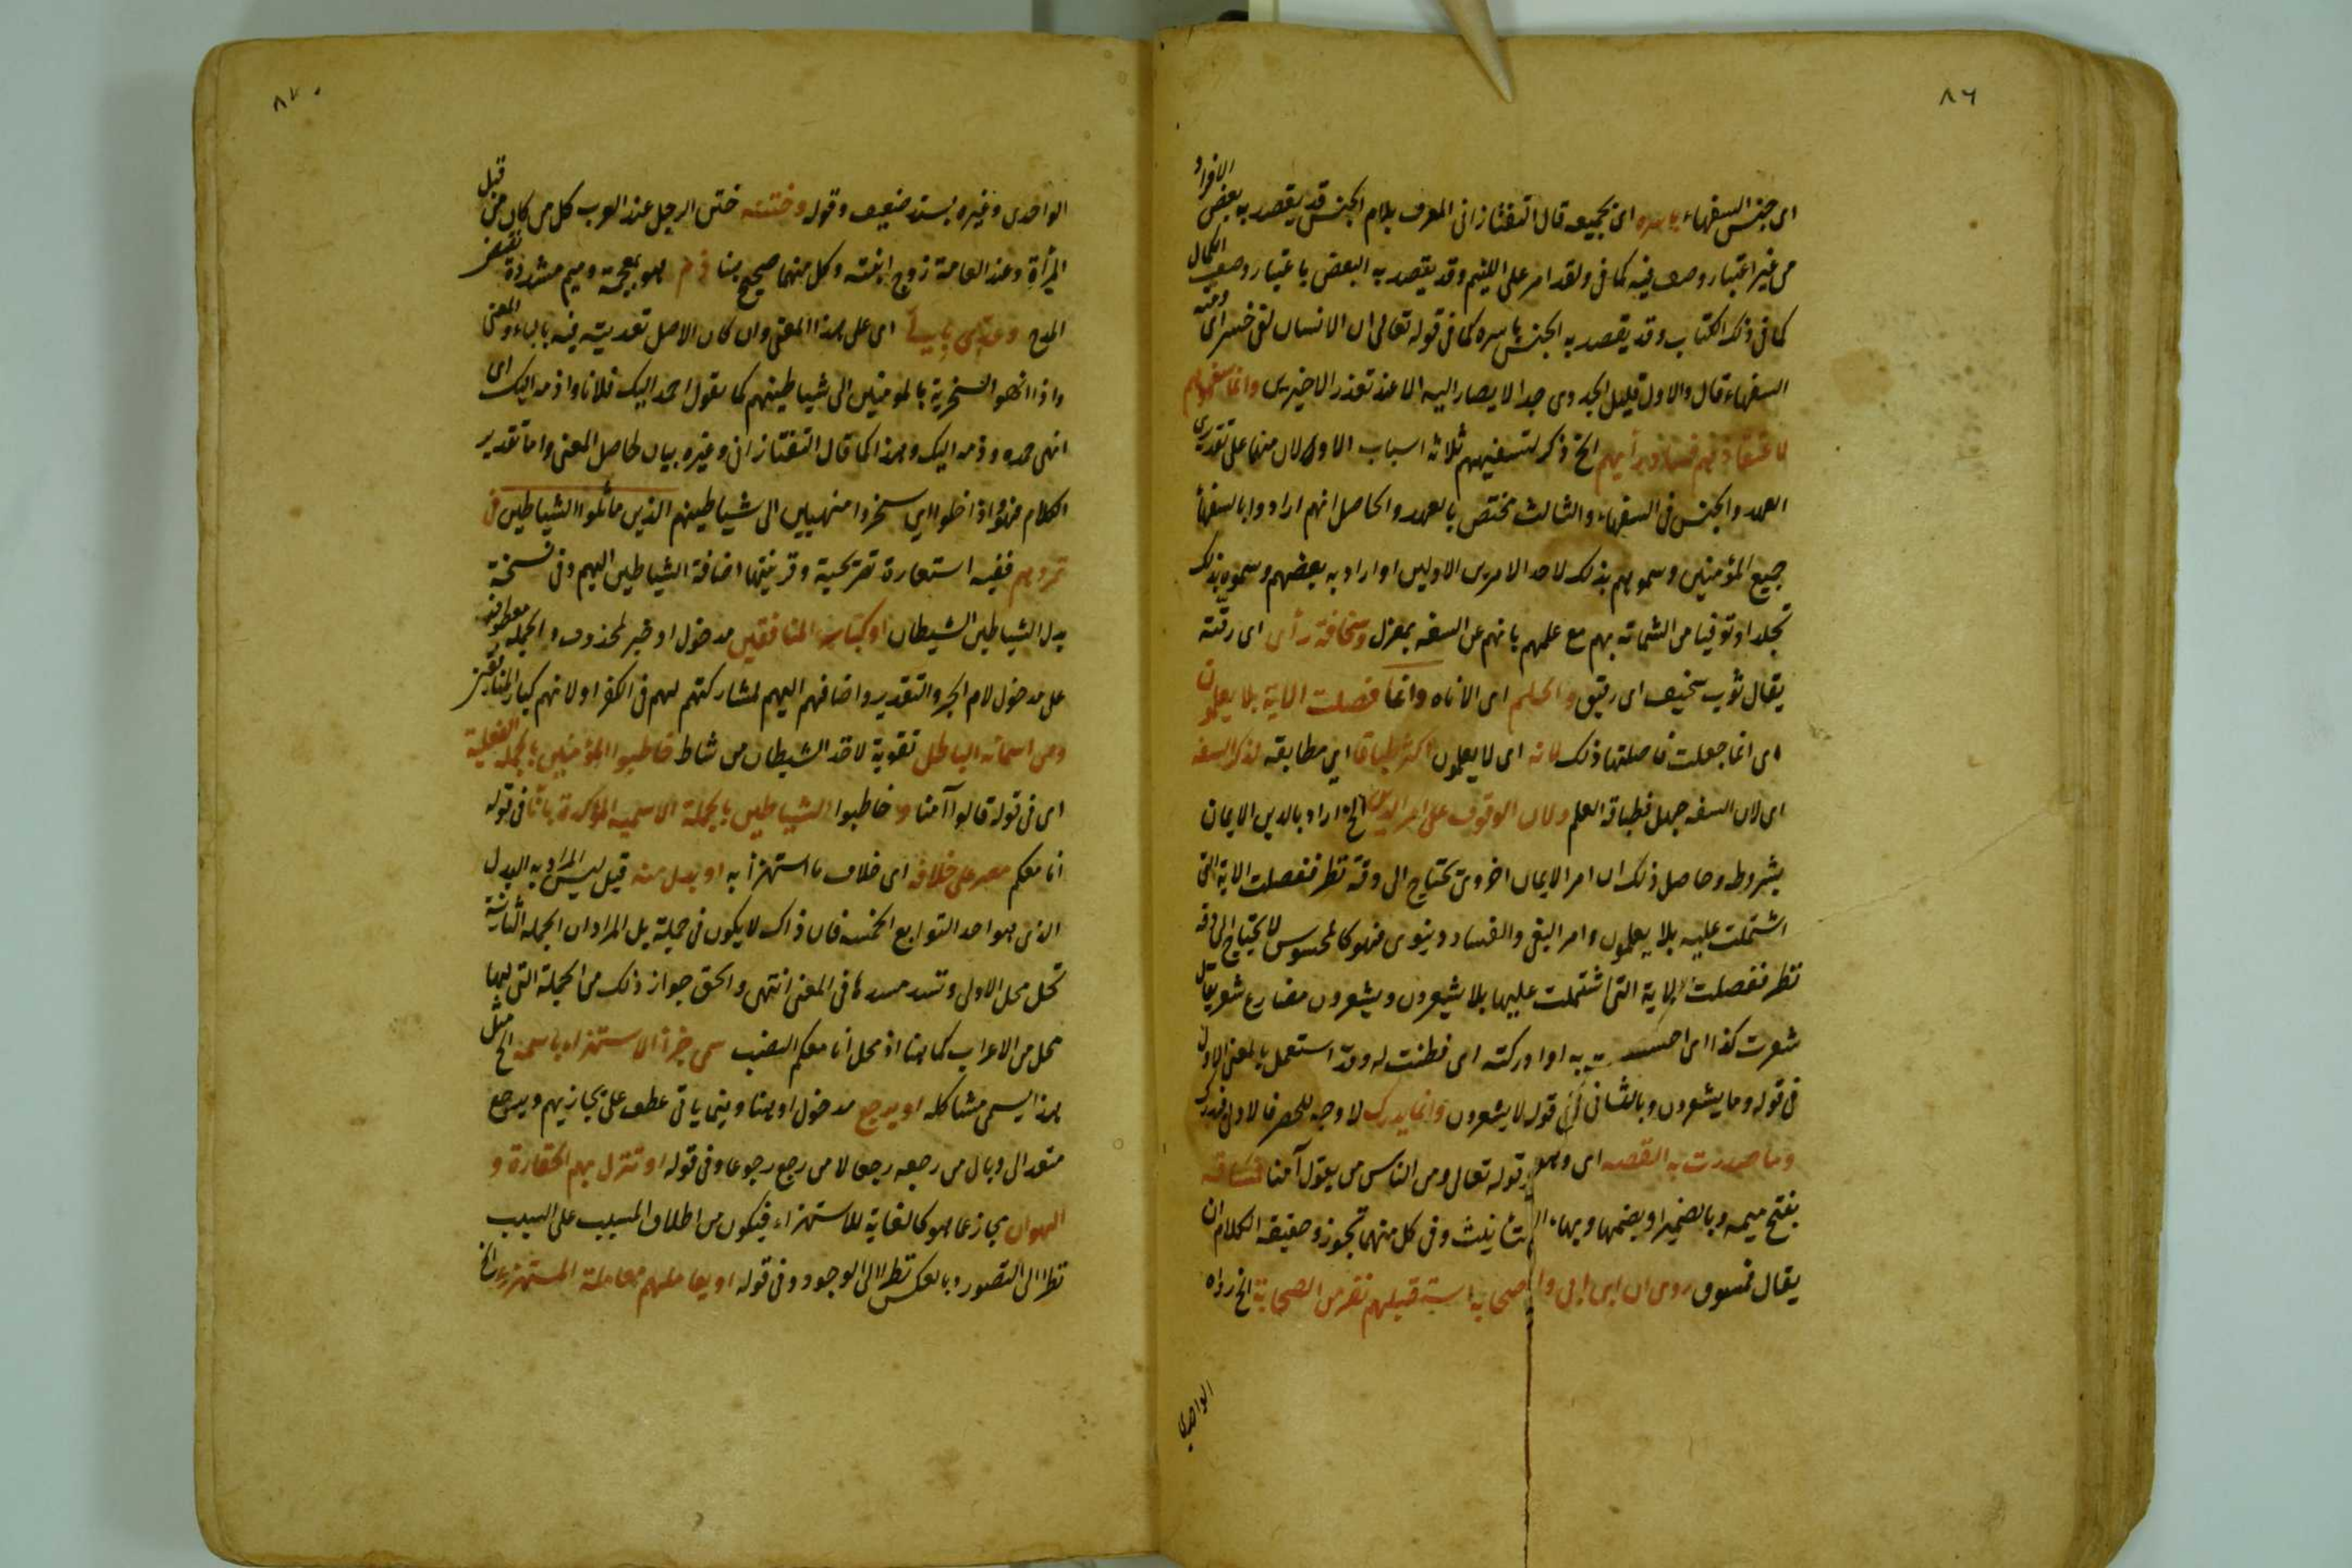 ٨٦
اى جنس السفهاء باسره اى بجميعه قال التفتازانى المعرف بلام الجنس قد يقصد به بعض الافراد
من غير اعتبار وصف فيه كما فى ولقد امر على اللئيم وقد يقصد به البعض باعتبار وصف الكمال
كما فى ذلك الكتاب وقد يقصد به الجنس باسره كما فى قوله تعالى ان الانسان لفى خسر اى ومنه
السفهاء قال والاول قليل الجدوى جدا لا يصار اليه الا عند تعذر الاخيرين وانما سفهوهم
لاعتقادهم فساد رأيهم الخ ذكر لتسفيههم ثلاثة اسباب الاولان منها على تقديرى
العهد والجنس فى السفهاء والثالث مختص بالعهد والحاصل انهم ارادوا بالسفهاء
جميع المؤمنين وسموهم بذلك لاحد الامرين الاولين او اراد به بعضهم وسموه بذلك
تجلدا وتوقيا من الشماتة بهم مع علمهم بانهم عن السفه بمعزل وسخافة رأى اى رقته
يقال ثوب سخيف اى رقيق والحلم اى الاناه وانما فصلت الاية بلا يعلمون
اى انما جعلت فاصلتها ذلك لانه اى لا يعلمون اكثر طباقا اى مطابقه لذكر السفه
اى لان السفه جهل فطباقه العلم ولان الوقوف على امر الدين الخ اراد بالدين الايمان
بشروطه وحاصل ذلك ان امر الايمان اخروى يحتاج الى دقة نظر ففصلت الاية التى
اشتملت عليه بلا يعلمون وامر البغى والفساد دنيوى فهو كالمحسوس لا يحتاج الى دقة
نظر ففصلت الاية التى اشتملت عليها بلا يشعرون ويشعرون مضارع شعر يقال
شعرت كذا اى احسست به او ادركته اى فطنت له وقد استعمل بالمعنى الاول
فى قوله وما يشعرون وبالثانى فى قوله لا يشعرون وانما يدرك لا وجه للحصر فالاولى فيدرك
وما صدرت به القصه اى وهو قوله تعالى ومن الناس من يقول آمنا فمساقه
بفتح ميمه وبالضمير او بضمها وبهاء التأنيث وفى كل منهما تجوز وحقيقة الكلام ان
يقال فمسوق روى ان ابن ابى واصحابه استقبلهم نفر من الصحابة الخ رواه
الواحدى
٨٧
الواحدى وغيره بسند ضعيف وقوله وختنه ختن الرجل عند العرب كل من كان من قبل
المرأة وعند العامة زوج ابنته وكل منهما صحيح هنا ذم هو بمعجمة وميم مشددة نقيض
المدح وعدى بالى اى على هذا المعنى وان كان الاصل تعديته فيه بالباء والمعنى
واذا انهو السخرية بالمؤمنين الى شياطينهم كما يقول احمد اليك فلانا واذمه اليك اى
انهى حمده وذمه اليك وهذا كما قال التفتازانى وغيره بيان لحاصل المعنى واما تقدير
الكلام فهو واذا خلوا اى سخروا منهيين الى شياطينهم الذين ماثلوا الشياطين فى
تمردهم ففيه استعارة تصريحية وقرينتها اضافة الشياطين اليهم وفى نسخة
بدل الشياطين الشيطان او كبار المنافقين مدخول او خبر لمحذوف والجملة معطوفة
على مدخول لام الجر والتقدير واضافهم اليهم لمشاركتهم لهم فى الكفر او لانهم كبار المنافقين
ومن اسمائه الباطل تقوية لاخذ الشيطان من شاط خاطبوا المؤمنين بالجملة الفعلية
اى فى قوله قالوا آمنا وخاطبوا الشياطين بالجملة الاسميه المؤكدة بان فى قوله
انا معكم مصر على خلافه اى خلاف ما استهزأ به او بدل منه قيل ليس المراد به البدل
الذى هو احد التوابع الخمسه فان ذاك لا يكون فى جملة بل المراد ان الجملة الثانية
تحل محل الاولى وتسد مسدها فى المعنى انتهى والحق جواز ذلك من الجملة التى لها
محل من الاعراب كما هنا اذ محل انا معكم النصب سمى جزاء الاستهزاء باسمه الخ مثل
هذا يسمى مشاكله او يرجع مدخول او هنا وفيما ياتى عطف على يجازيهم ويرجع
متعد الى وبال من رجعه رجعا لا من رجع رجوعا وفى قوله او تنزل بهم الحقارة و
الهوان مجاز عما هو كالغاية للاستهزاء فيكون من اطلاق المسبب على السبب
نظرا الى التصور وبالعكس نظرا الى الوجود وفى قوله او يعاملهم معاملة المستهزئ الخ